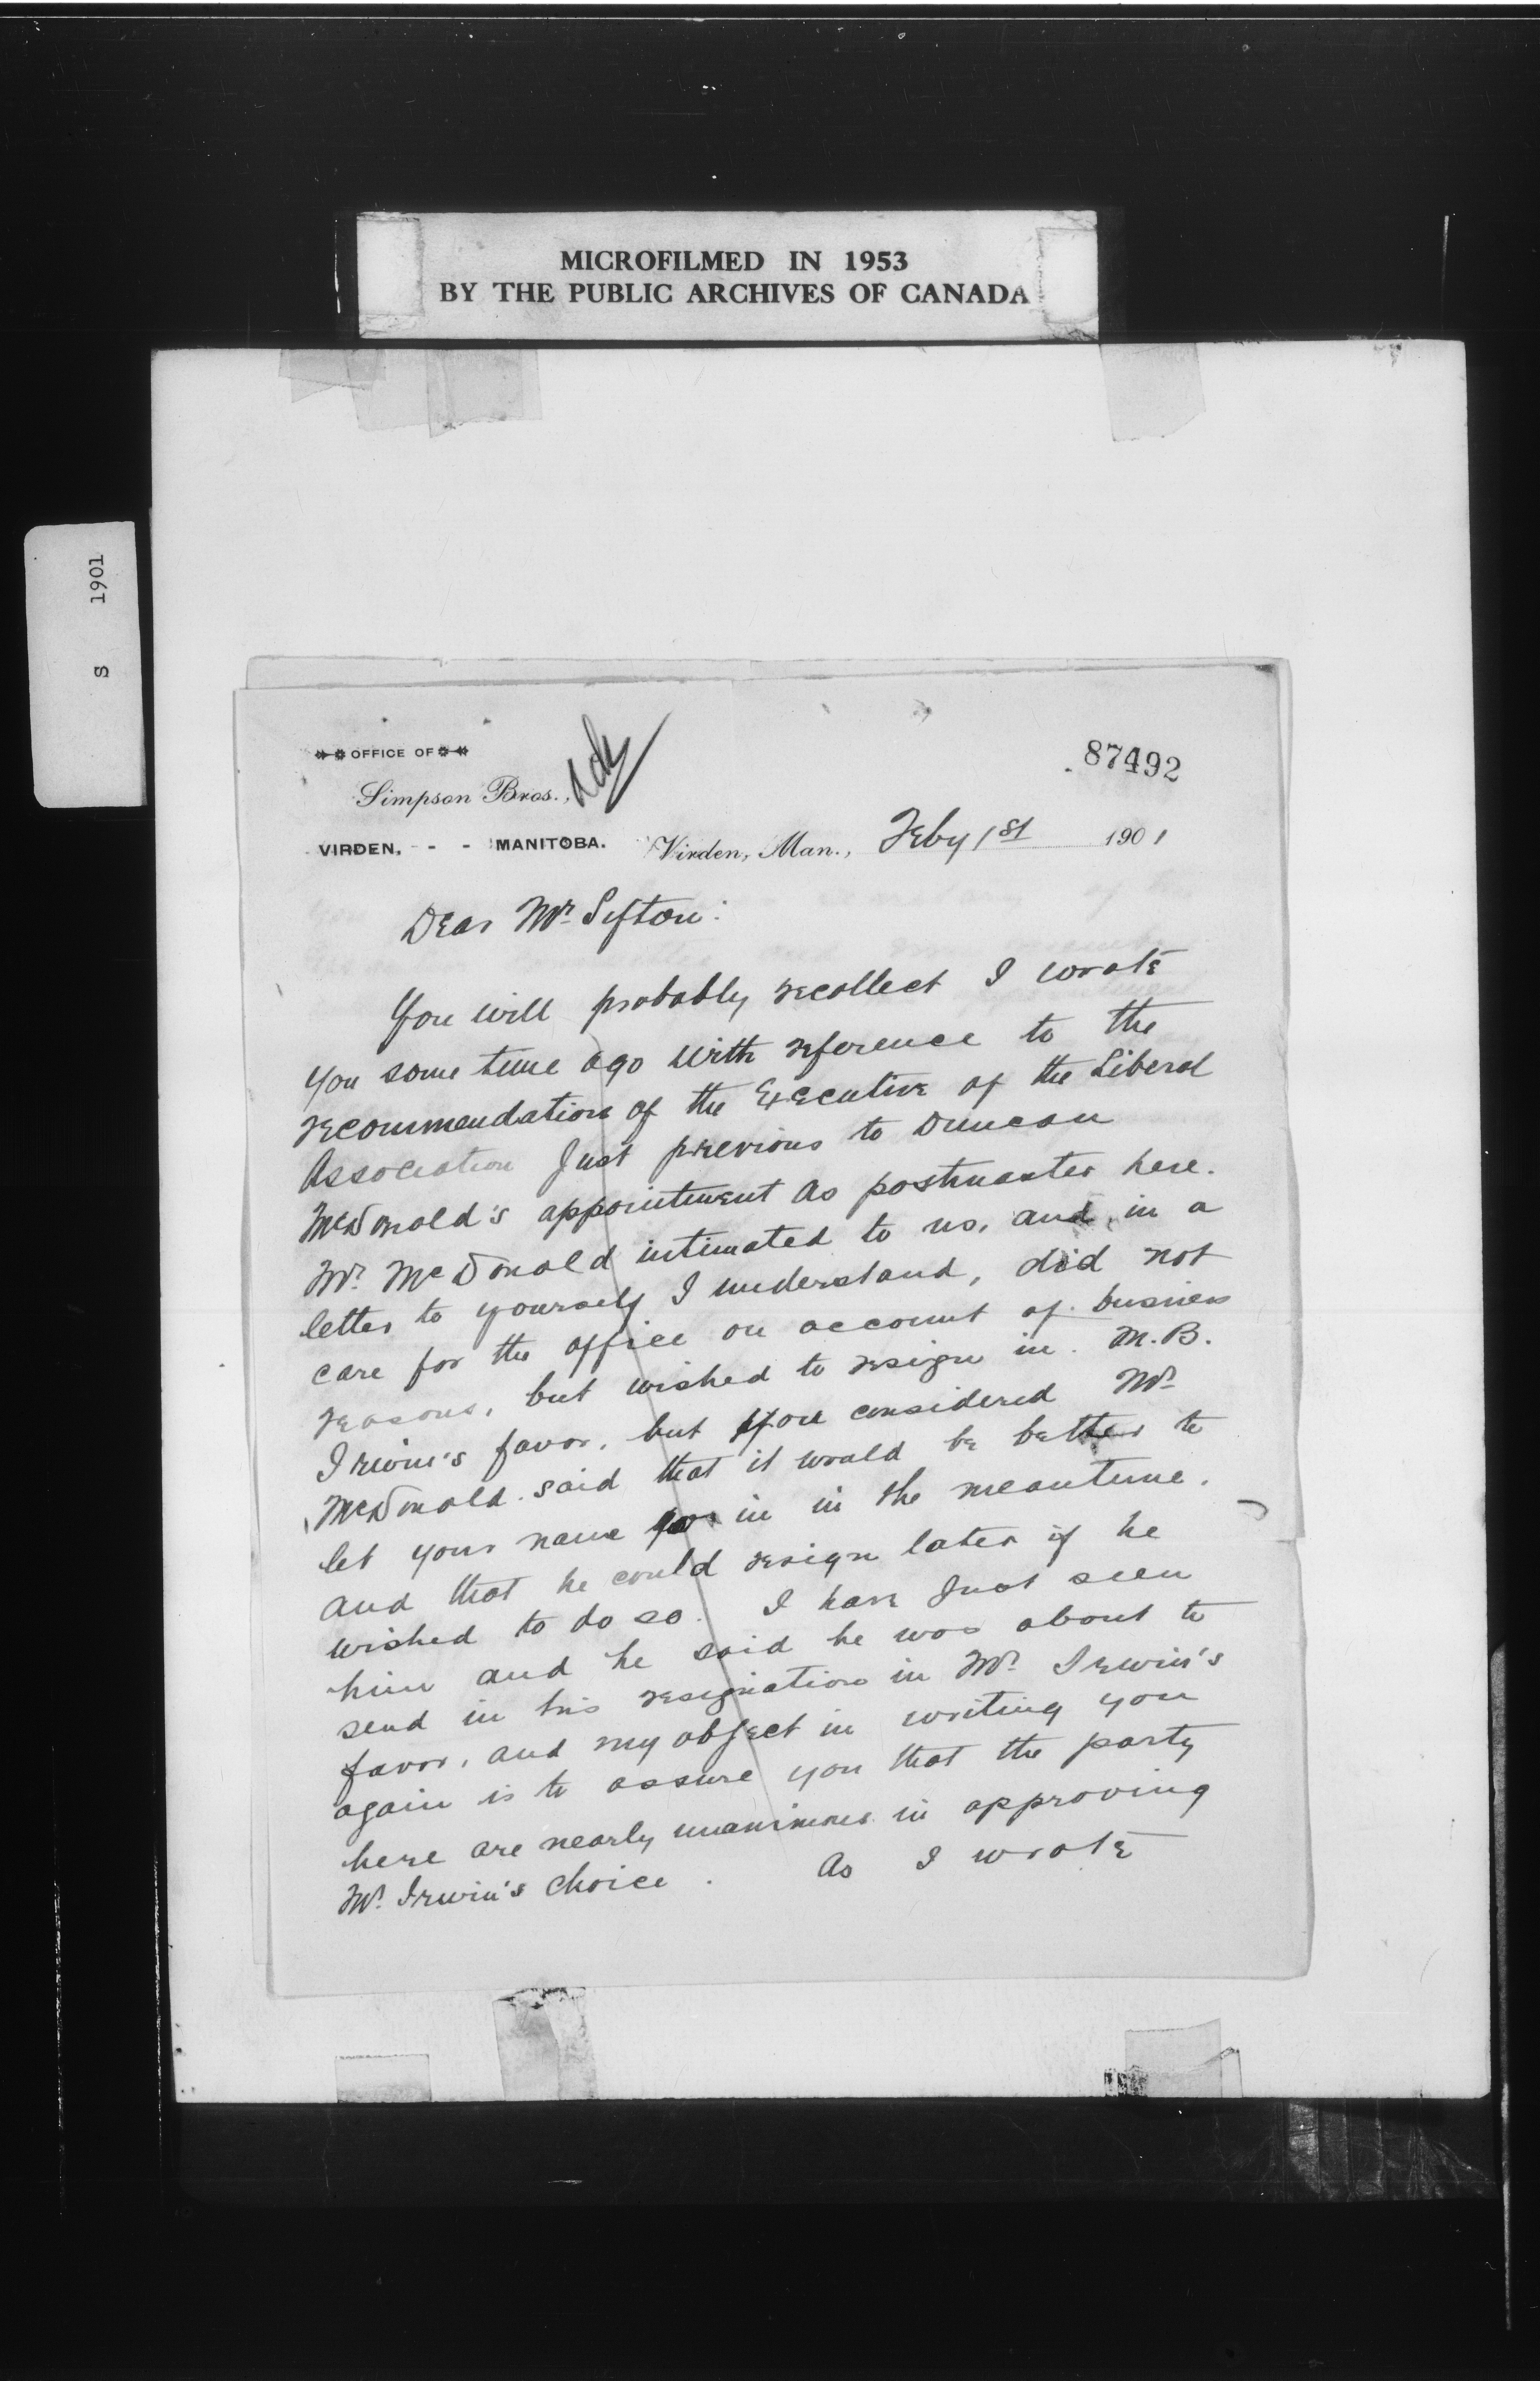 MICROFILMED IN 1953
BY THE PUBLIC ARCHIVES OF CANADA
S 1901
OFFICE OF
Simpson Bros.,
VIRDEN, - - MANITOBA.
87492
Virden, Man., Feby 1st 1901
Dear Mr Sifton:
You will probably recollect I wrote
you some time ago with reference to the
recommendation of the Executive of the Liberal
Association just previous to Duncan
McDonald's appointment as postmaster here.
Mr. McDonald intimated to us, and in a
letter to yourself I understand, did not
care for the office on account of business
reasons, but wished to resign in M.B.
Irwin's favor, but you considered Mr
McDonald said that it would be better to
let your name go in in the meantime.
and that he could resign later if he
wished to do so. I have just seen
him and he said he was about to
send in his resignation in Mr. Irwin's
favor, and my object in writing you
again is to assure you that the party
here are nearly unanimous in approving
Mr. Irwin's choice. As I wrote